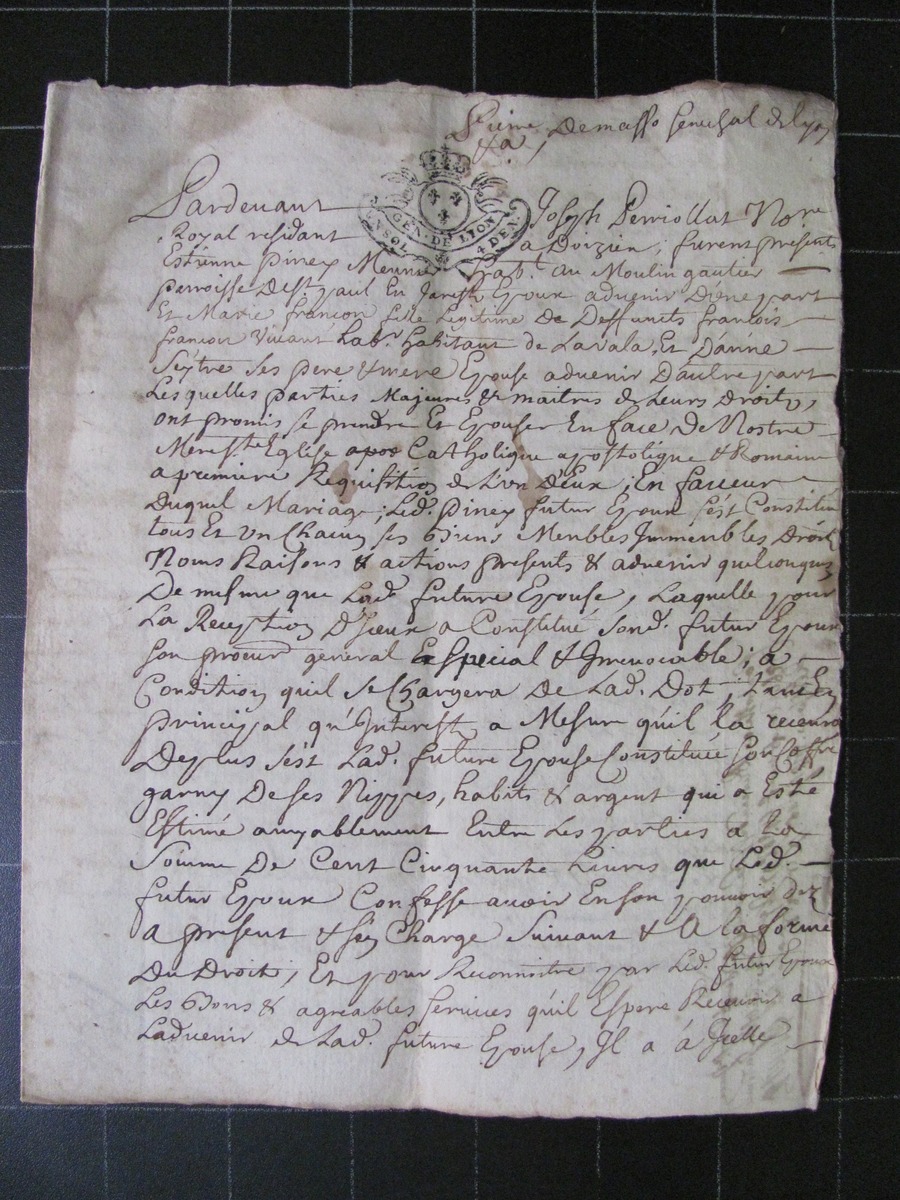 Pierre Demasso senechal de lyon
&a,
Pardevant Joseph Perriollat Nore
GEN. DE LYON
UN SOL 4 DEN.
Royal residant a Doizieu ; furent presents
Estienne pirey Meunier habt. au Moulin gautier —
perroisse de st paul En Jarest Epoux advenir d'une part
Et Marie françon fille legitime de Deffunts francois —
françon vivant Labr. habitant de Lavala, Et D'anne —
Seytre ses pere & mere Epouse advenir D'autre part
Lesquelles parties Majeures & maitres de leurs Droits,
ont promis se prendre Et Epouser En face de Nostre
Mere ste Eglise apos Catholique apostolique & Romaine
a premiere Requisition de L'un D'eux ; En faveur —
Duquel Mariage ; Led. pirey futur Epoux s'est Constitué
tous Et un Chacun ses Biens Meubles Immeubles Droits
Noms Raisons & actions presents & advenir quelconques
De mesme que Lad. future Epouse, Laquelle pour
La Reception D'Iceux a Constitué sond. futur Epoux
son procur general Especial & Irrevocable ; a —
Condition qu'il se Chargera De Lad. Dot, tant En
principal qu'Interest a Mesure qu'il la recevra
De plus s'est Lad. future Epouse Constituée son Coffre
garny De ses Nippes, habits & argent qui a Esté
Estimé amyablement Entre Les parties a la
Somme De Cent Cinquante Livres que Led. —
futur Epoux Confesse avoir En son pouvoir dez
a present & s'en Charge Suivant & A la forme
Du Droit ; Et pour Reconnoitre par Led. futur Epoux
Les Bons & agreables services qu'il Espere Recevoir a
Ladvenir de Lad. future Epouse, Il a à Icelle —